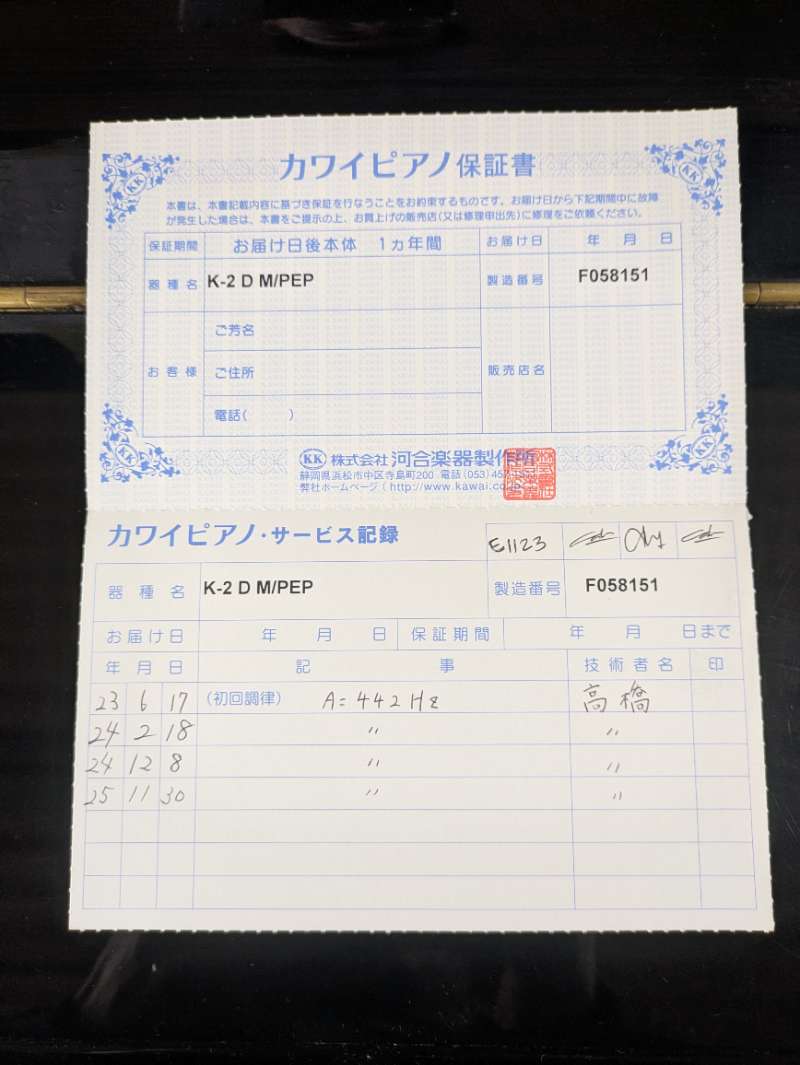 カワイピアノ保証書
本書は、本書記載内容に基づき保証を行なうことをお約束するものです。お届け日から下記期間中に故障
が発生した場合は、本書をご提示の上、お買上げの販売店(又は修理申出先)に修理をご依頼ください。
保証期間 お届け日後本体 1ヵ年間 お届け日 年 月 日
器種名 K-2 D M/PEP 製造番号 F058151
お客様 ご芳名 販売店名
ご住所
電話( )
KK 株式会社 河合楽器製作所
静岡県浜松市中区寺島町200 電話(053)457-
弊社ホームページ(http://www.kawai.co.jp
カワイピアノ・サービス記録 E1123
器種名 K-2 D M/PEP 製造番号 F058151
お届け日 年 月 日 保証期間 年 月 日まで
年 月 日 記 事 技術者名 印
23 6 17 (初回調律) A=442Hz 高橋
24 2 18 〃 〃
24 12 8 〃 〃
25 11 30 〃 〃